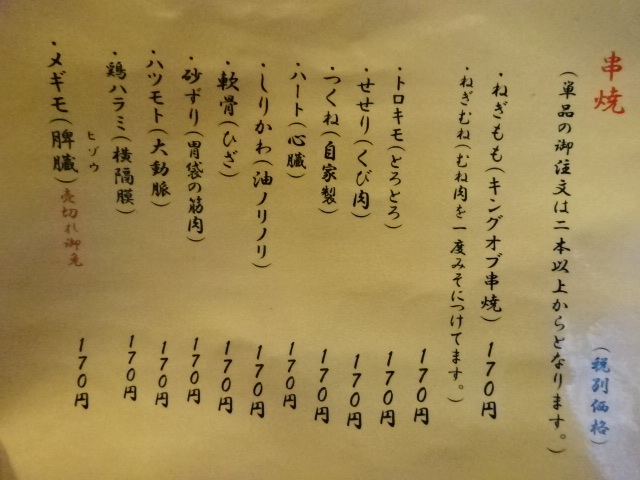 串焼
(税別価格)
(単品の御注文は二本以上からとなります。)
・ねぎもも(キングオブ串焼) 170円
・ねぎむね(むね肉を一度みそにつけてます。) 170円
・トロキモ(とろとろ) 170円
・せせり(くび肉) 170円
・つくね(自家製) 170円
・ハート(心臓) 170円
・しりかわ(油ノリノリ) 170円
・軟骨(ひざ) 170円
・砂ずり(胃袋の筋肉) 170円
・ハツモト(大動脈) 170円
・鶏ハラミ(横隔膜) 170円
ヒゾウ
・メギモ(脾臓)売切れ御免 170円